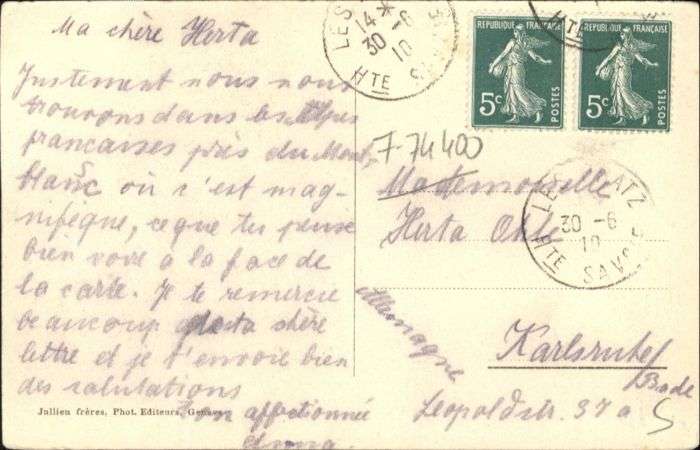 Ma chère Herta
Justement nous nous
trouvons dans les Alpes
francaises près du Mont-
blanc où c'est mag-
nifique, ce que tu peuse
bien voir à la face de
la carte. Je te remercie
beaucoup chère
lettre et je t'envoie bien
des salutations
Ton affectionnée
Anna.
Jullien frères, Phot. Editeurs, Genève
LES
14 *
30 -6
10
HTE SAVOIE
REPUBLIQUE FRANÇAISE
5c
POSTES
REPUBLIQUE FRANÇAISE
5c
POSTES
HTE
7-74400
Mademoiselle
Herta Ohle
LES PRATZ
30 -6
10
HTE SAVOIE
Allemagne
Karlsruhe/
Bade
Leopoldstr. 37a
5